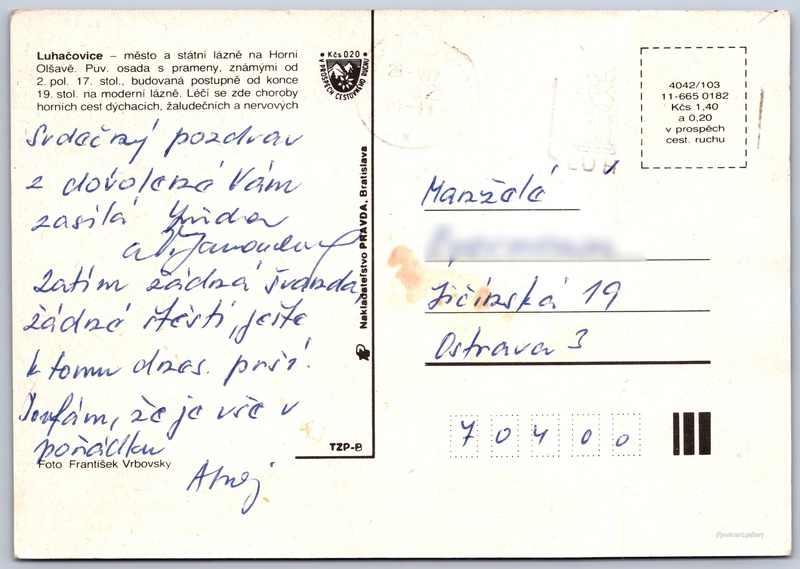 Luhačovice – město a státní lázně na Horní
Olšavě. Pův. osada s prameny, známými od
2. pol. 17. stol., budovaná postupně od konce
19. stol. na moderní lázně. Léčí se zde choroby
horních cest dýchacích, žaludečních a nervových
Kčs 0.20
V PROSPĚCH CESTOVNÍHO RUCHU
Srdečný pozdrav
z dovolené Vám
zasílá
a
Zatím žádná švanda,
žádné štěstí, ješte
k tomu dnes. prší.
Doufám, že je vše v
pořádku
Ahoj
Foto František Vrbovský
Nakladateľstvo PRAVDA, Bratislava
TZP-B
4042/103
11-665 0182
Kčs 1,40
a 0,20
v prospěch
cest. ruchu
Manželé
Jičínská 19
Ostrava 3
7 0 4 0 0